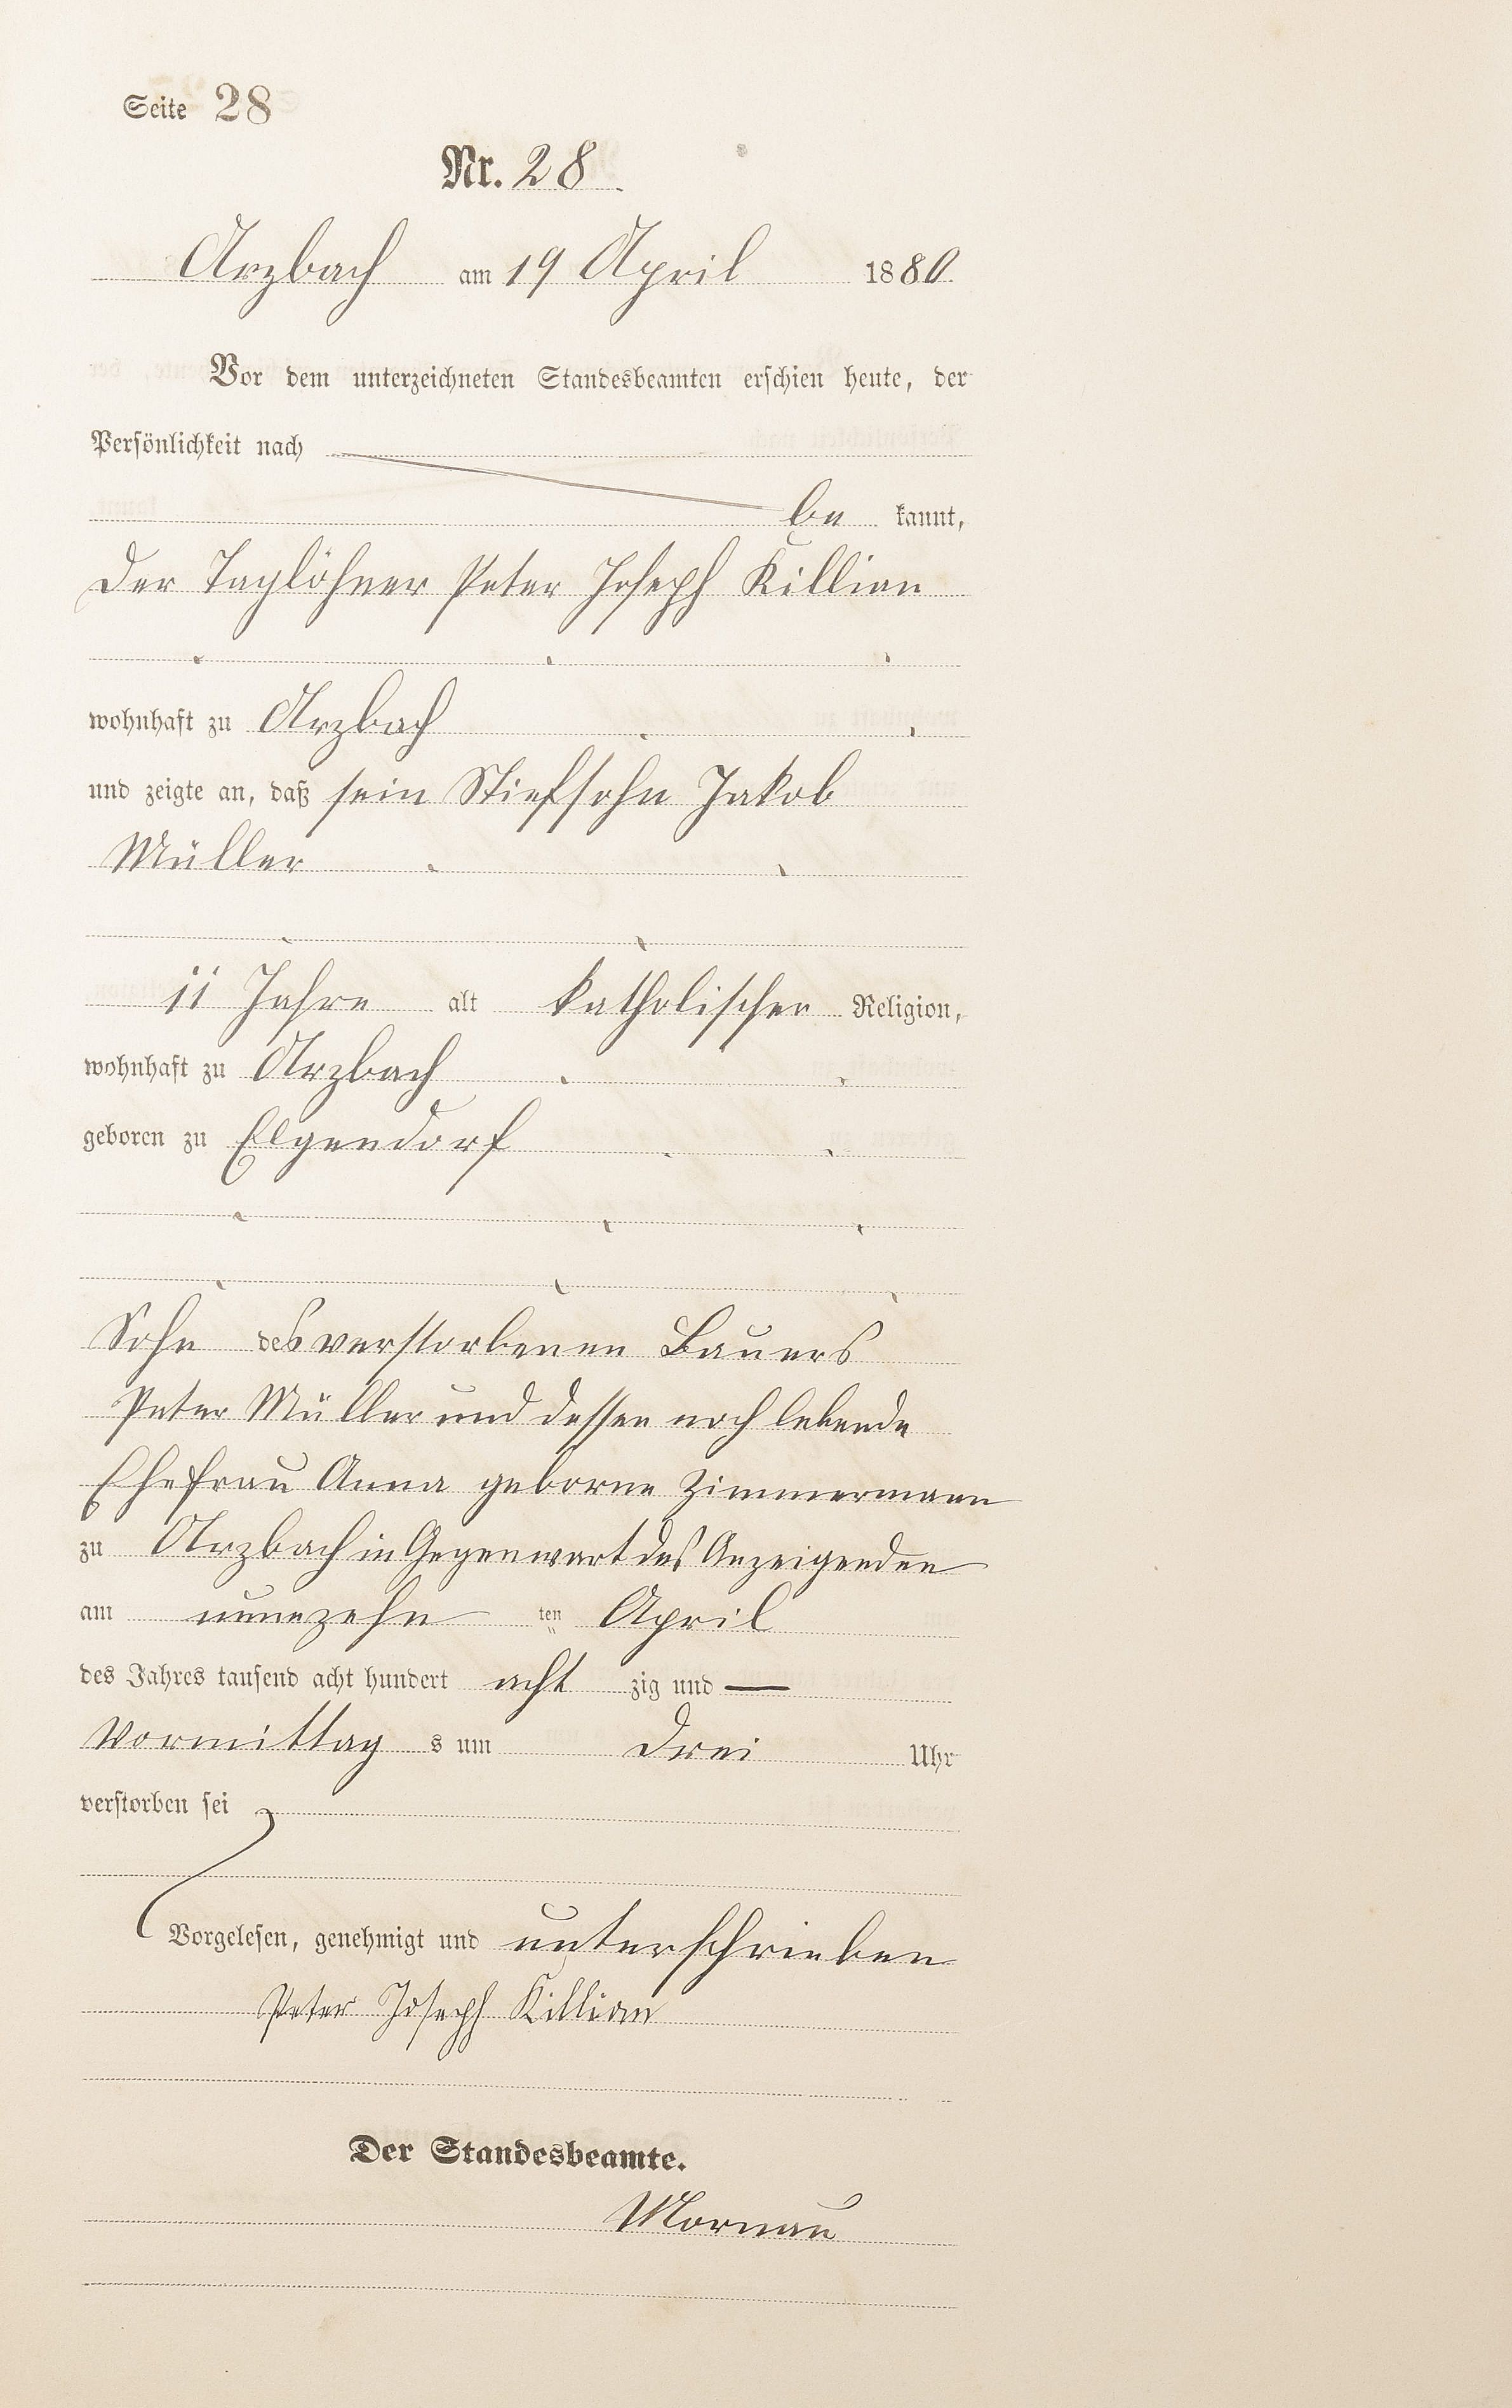 Seite 28
Nr. 28
Arzbach am 19 April 1880.
Vor dem unterzeichneten Standesbeamten erschien heute, der
Persönlichkeit nach
be kannt,
Der Taglöhner Peter Joseph Killian
wohnhaft zu Arzbach
und zeigte an, daß sein Stiefsohn Jakob
Müller
11 Jahre alt katholischer Religion,
wohnhaft zu Arzbach
geboren zu Elgendorf
Sohn des verstorbenen Bauers
Peter Müller und dessen noch lebende
Ehefrau Anna geborne Zimmermann
zu Arzbach in Gegenwart des Anzeigenden
am neunzehn ten April
des Jahres tausend acht hundert acht zig und —
Vormittag s um Drei Uhr
verstorben sei
Vorgelesen, genehmigt und unterschrieben
Peter Joseph Killian
Der Standesbeamte.
Mornau